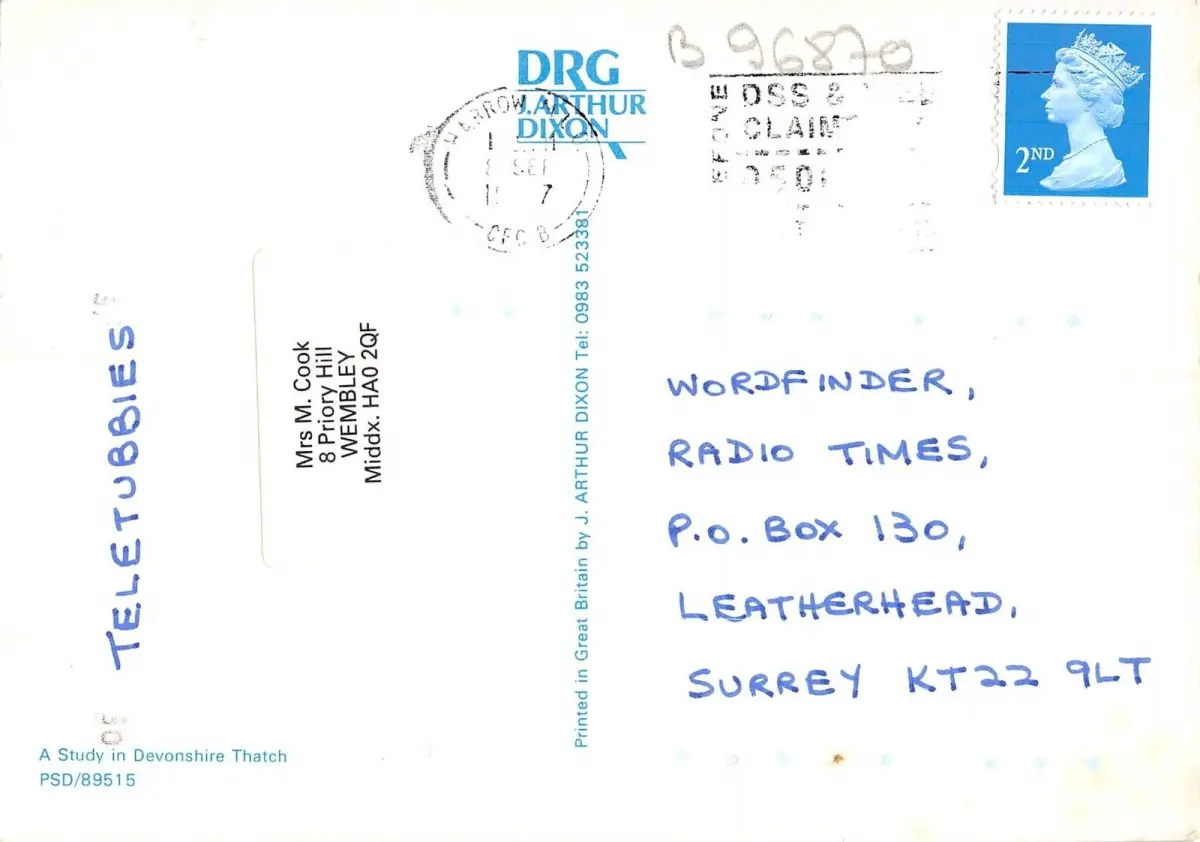 B 96870
DRG
J. ARTHUR
DIXON
HARROW
SEP
CFC B
DSS &
CLAIM
2ND
TELETUBBIES
Mrs M. Cook
8 Priory Hill
WEMBLEY
Middx. HA0 2QF
Printed in Great Britain by J. ARTHUR DIXON Tel: 0983 523381
WORDFINDER,
RADIO TIMES,
P.O. BOX 130,
LEATHERHEAD,
SURREY KT22 9LT
A Study in Devonshire Thatch
PSD/89515